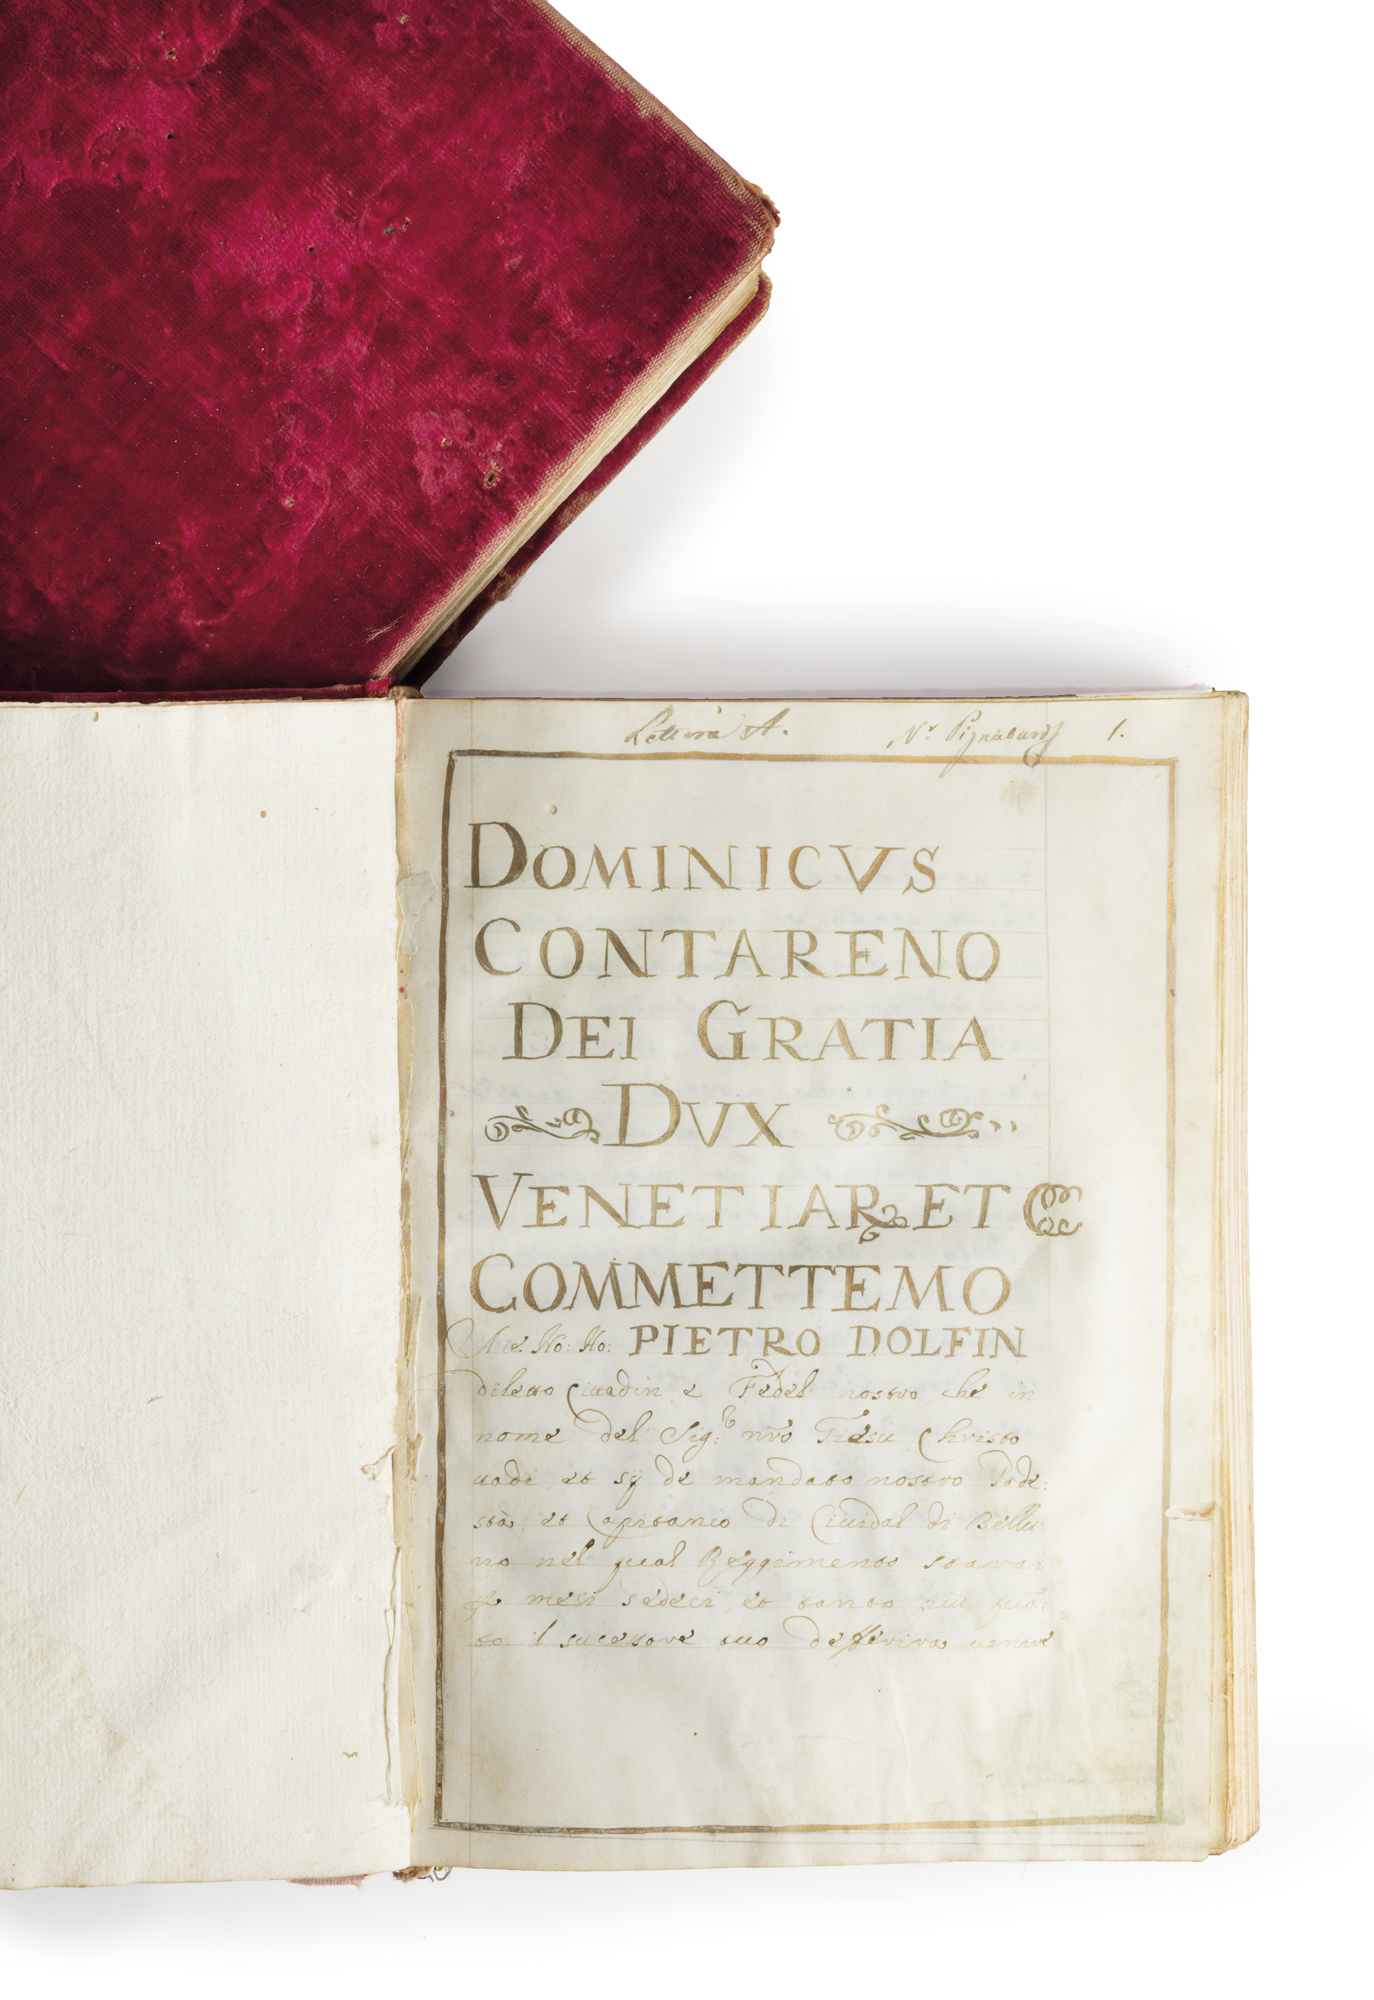 Lettera A. Nr. 1.
DOMINICVS
CONTARENO
DEI GRATIA
DVX
VENETIAR ET
COMMETTEMO
A te No: Ho: PIETRO DOLFIN
diletto Cittadin e Fedel nostro che in
nome del Sigr: nro Giesù Christo
vadi et sij de mandato nostro Pode:
stà, et Capitanio di Cividal di Bellu:
no nel qual Reggimento starai
mesi sedeci, et tanto più quã:
to il sucessore tuo defferirà venire